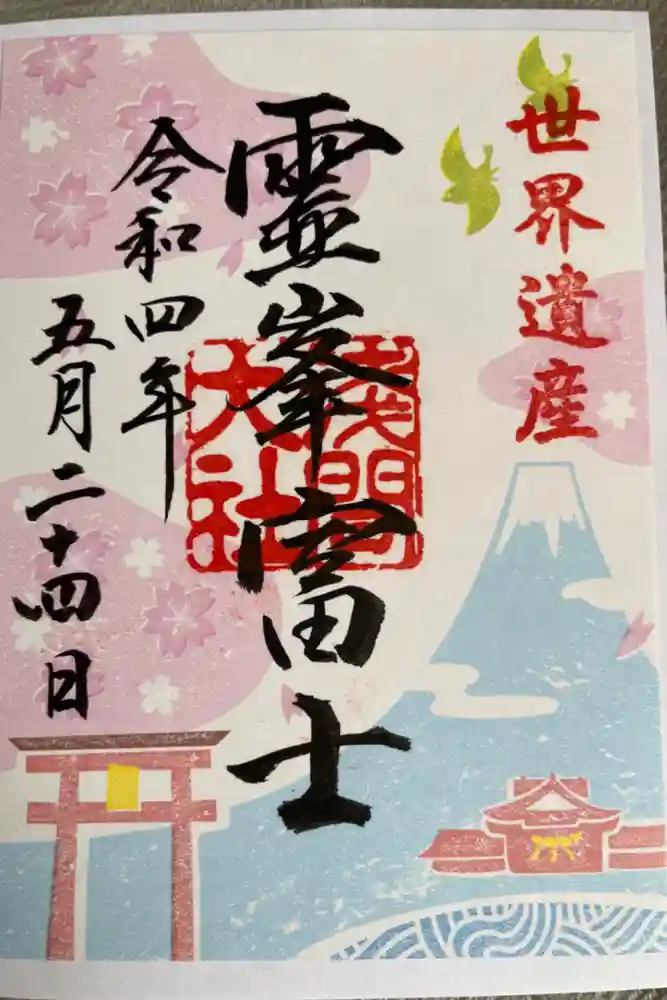 世界遺産
靈峯冨士
浅間大社
令和四年
五月二十四日